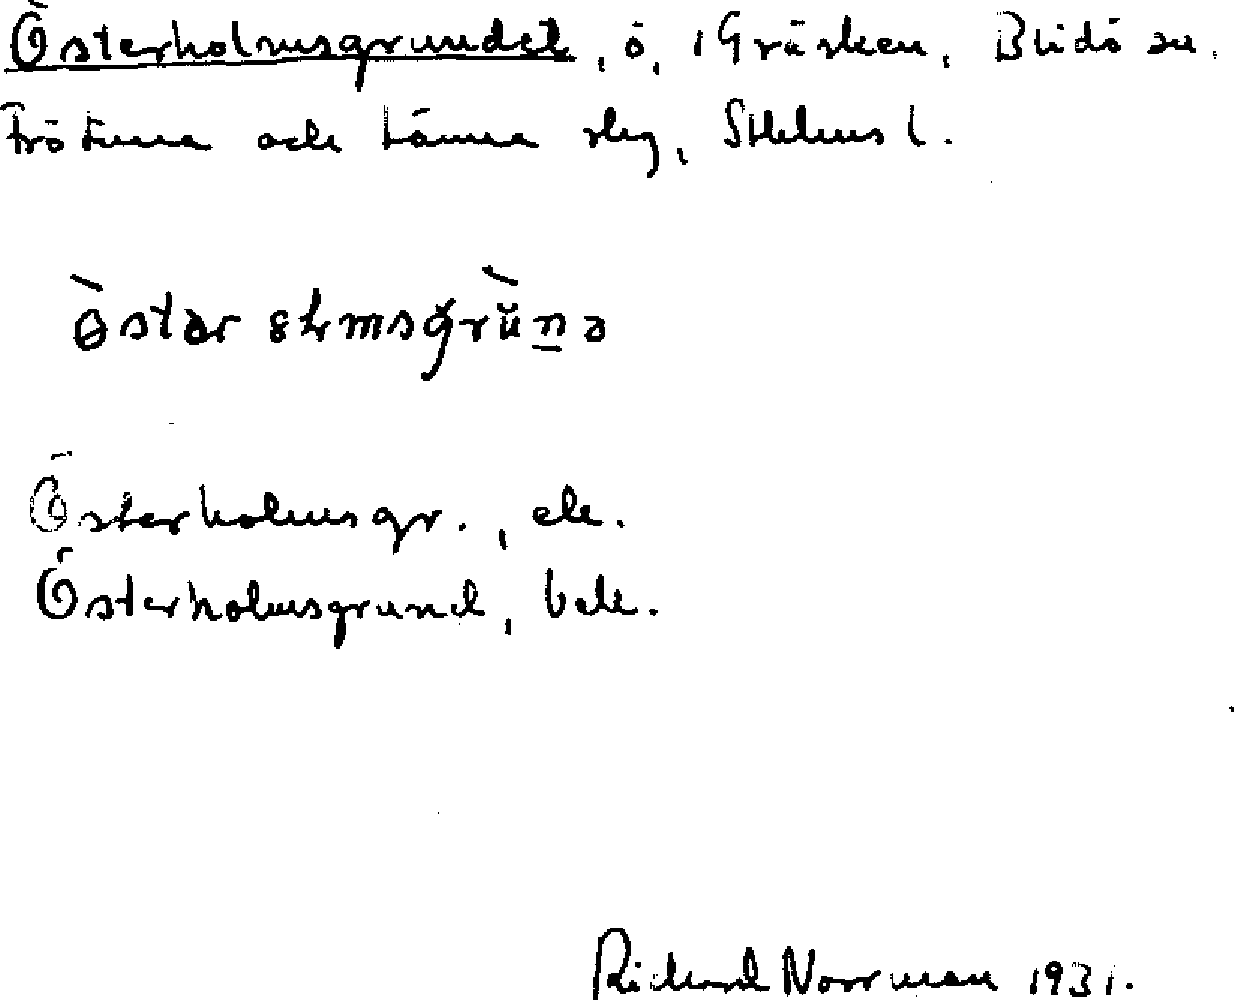 Österholmsgrundet, ö, i Gräsken, Blidö sn.
Frötuna och Länna slg, Sthlms l.
Österholmsgr., ek.
Österholmsgrund, beb.
Richard Norrman 1931.